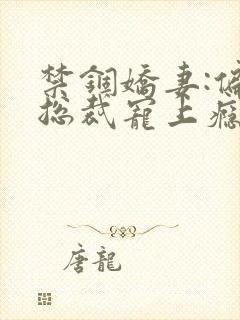 禁錮嬌妻:偏
總裁寵上癮
唐龍